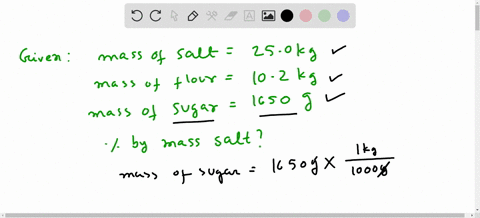 Given: mass of salt = 25.0 kg ✓
mass of flour = 10.2 kg ✓
mass of sugar = 1650 g ✓
% by mass salt?
mass of sugar = 1650g × 1kg/1000g